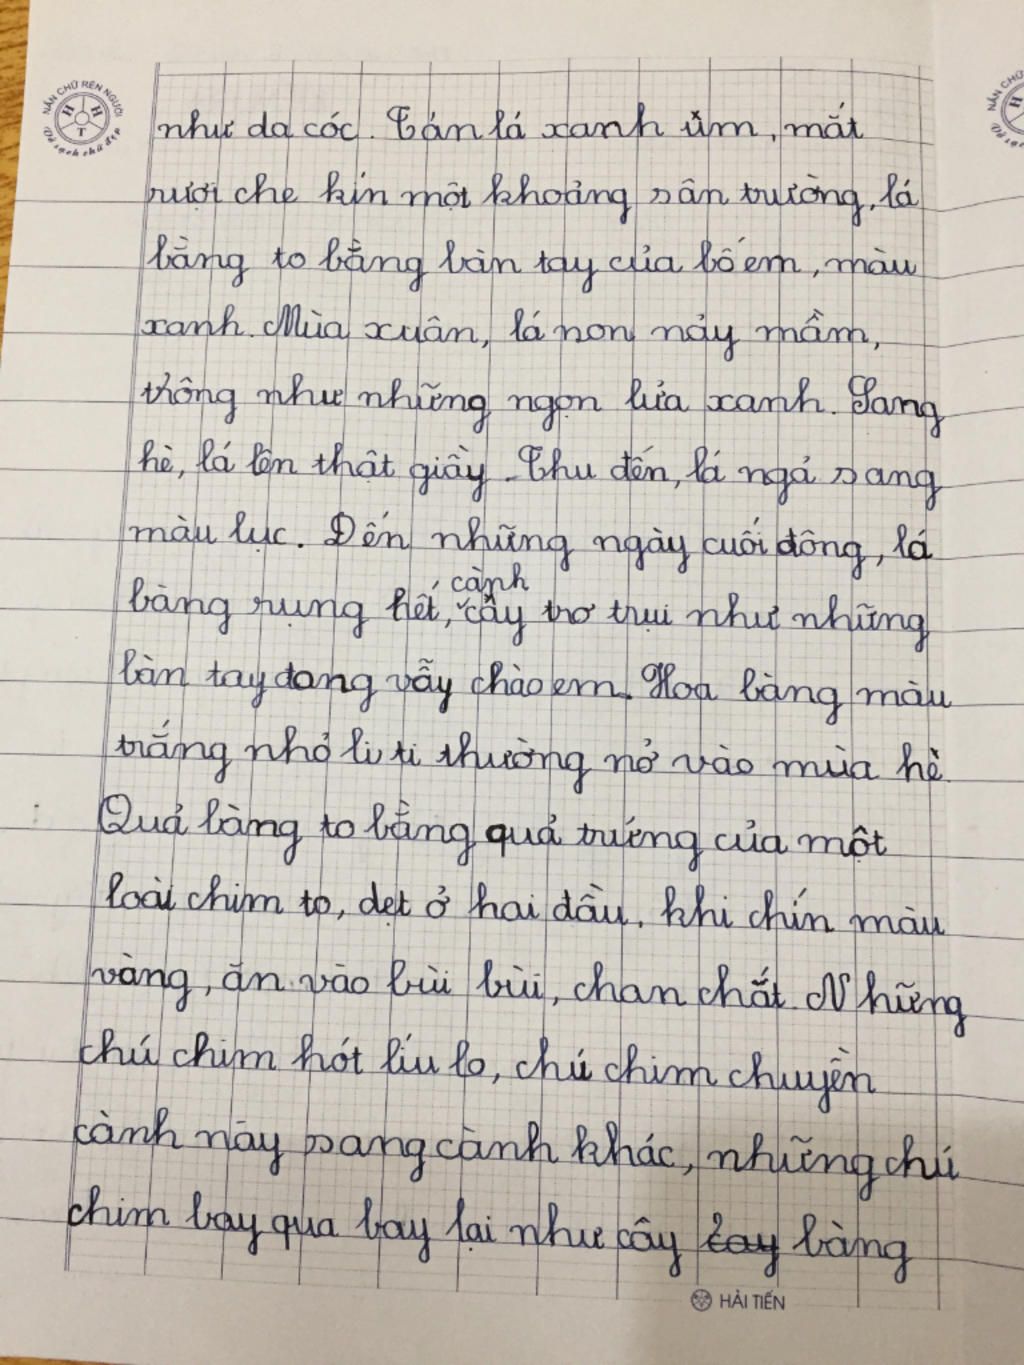 NẮN CHỮ RÈN NGƯỜI
H H T
Vở sạch chữ đẹp
như da cóc. Tán lá xanh ŭm, mát
rượi che kín một khoảng sân trường, lá
bằng to bằng bàn tay của bố em, màu
xanh. Mùa xuân, lá non nảy mầm,
trông như những ngọn lửa xanh. Sang
hè, lá lên thật giầy. Thu đến, lá ngả sang
màu lục. Đến những ngày cuối đông, lá
cành
bàng rụng hết, cây trơ trụi như những
bàn tay dang vẫy chào em. Hoa bàng màu
trắng nhỏ li ti thường nở vào mùa hè.
Quả bàng to bằng quả trứng của một
loài chim to, dẹt ở hai đầu, khi chín màu
vàng, ăn vào bùi bùi, chan chắt. Những
chú chim hót líu lo, chú chim chuyền
cành này sang cành khác, những chú
chim bay qua bay lại như cây tay bàng
HẢI TIẾN